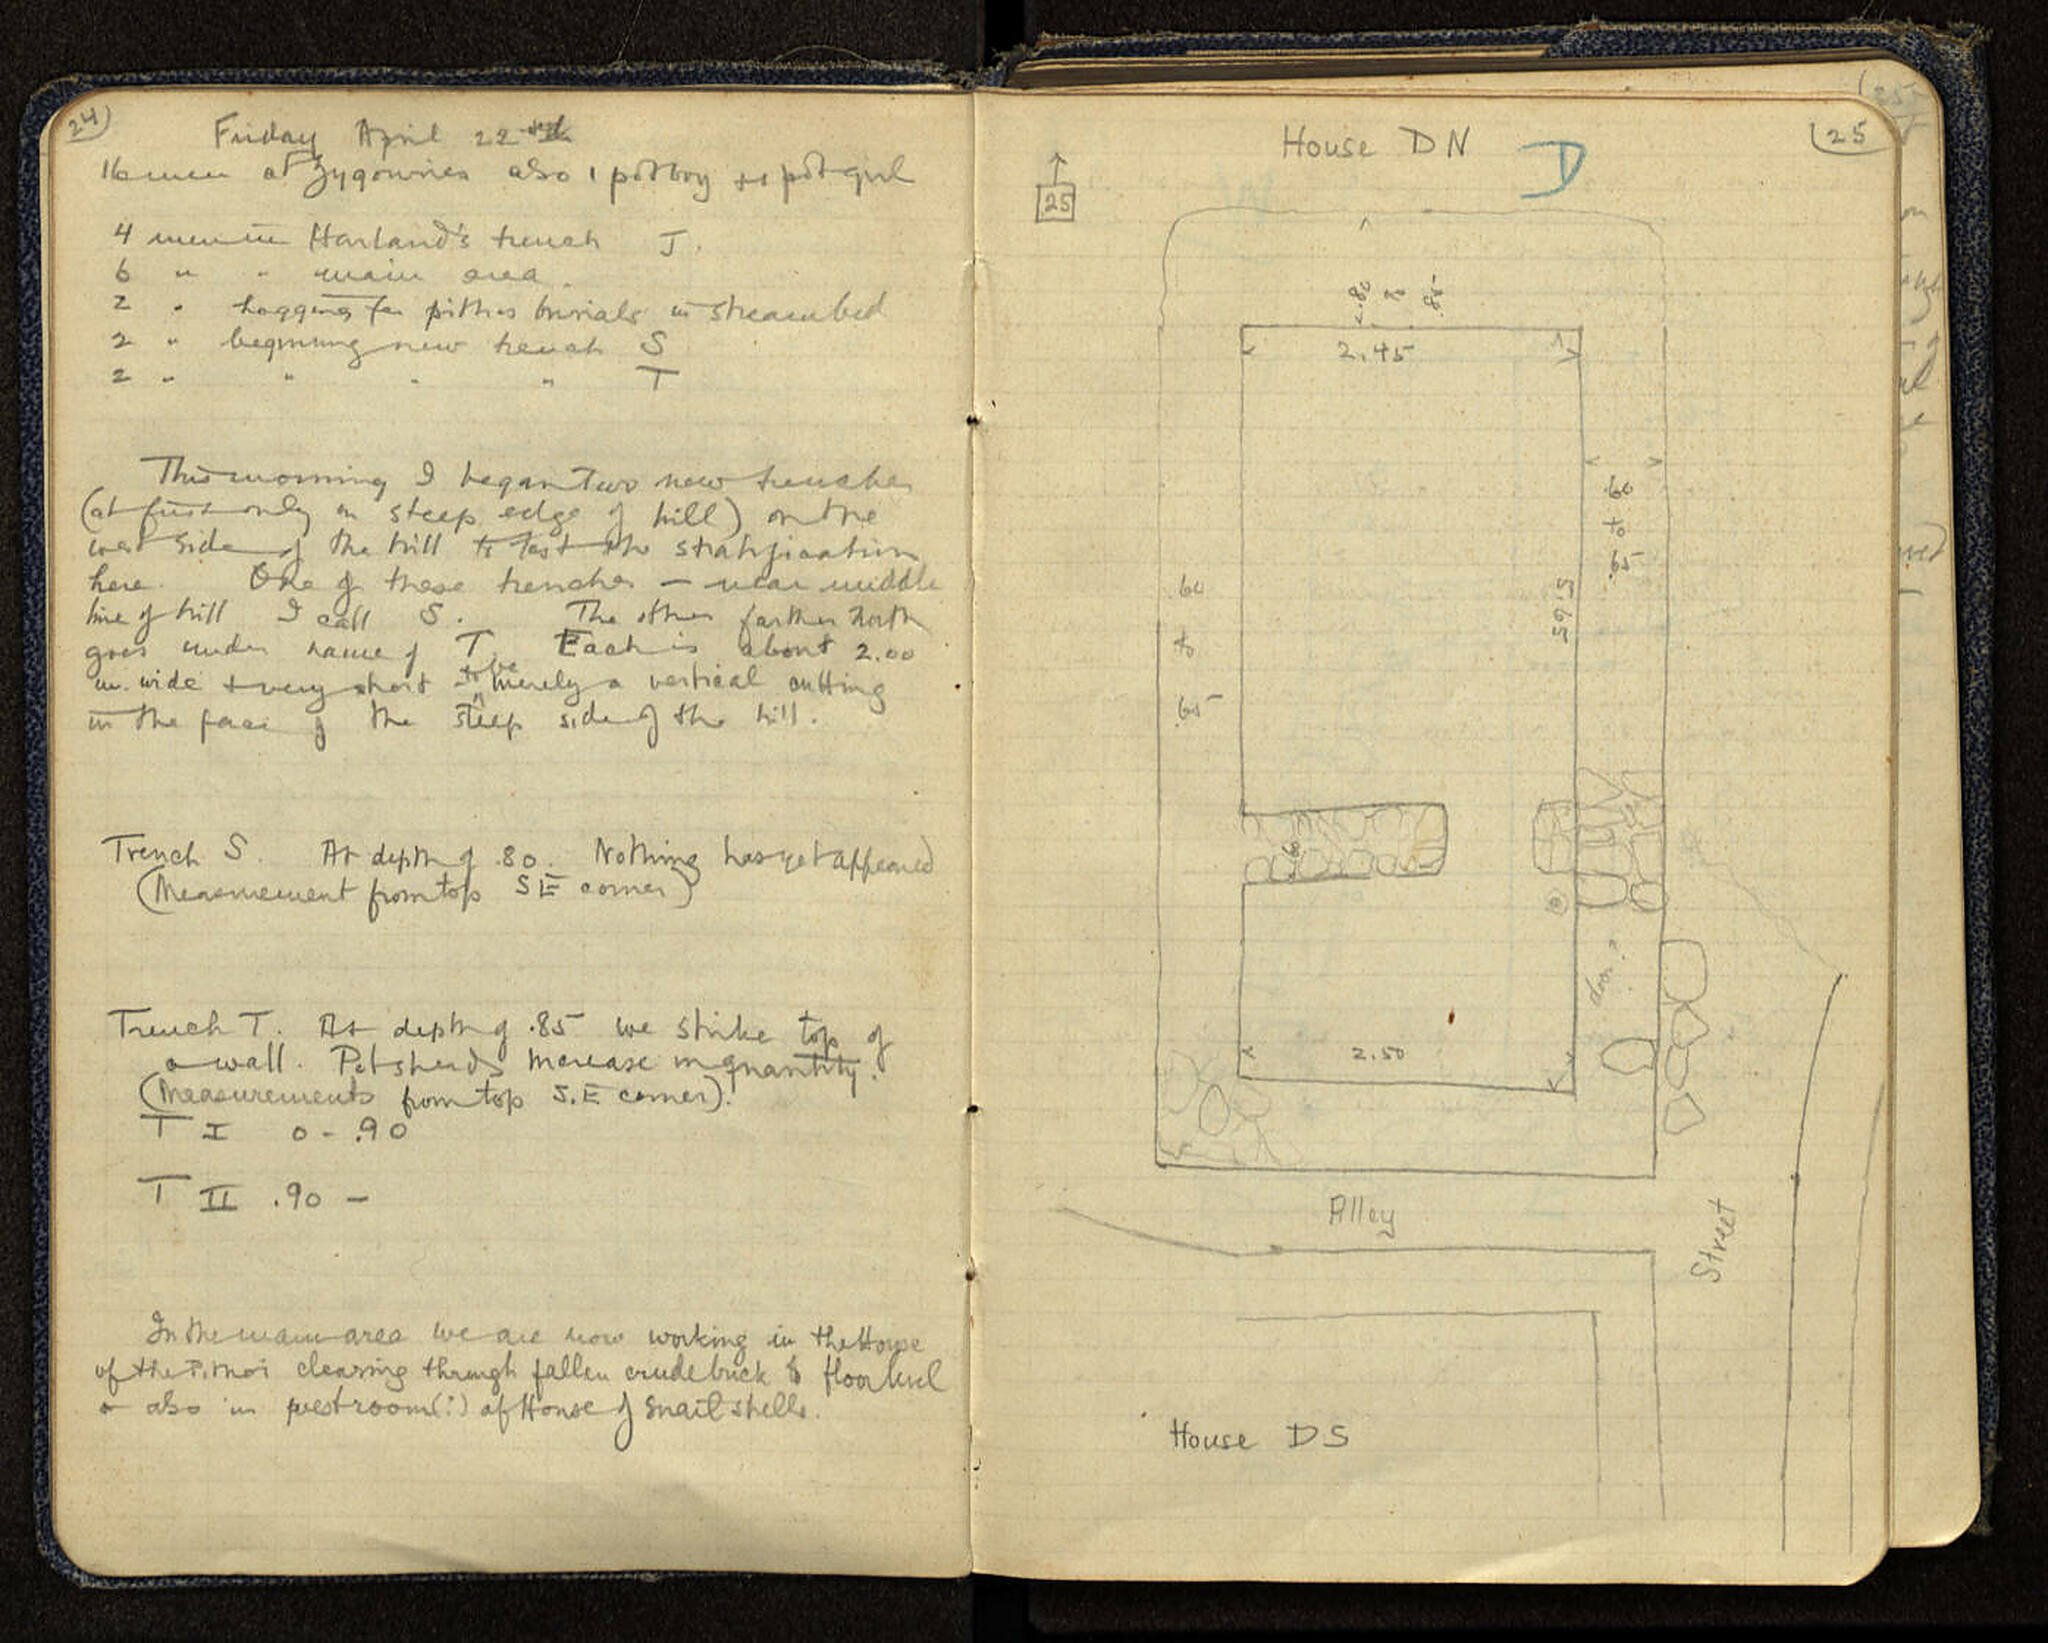 24
Friday April 22nd
16 men at Zygouries also 1 potboy + 1 potgirl
4 men in Harland's trench J.
6 " " main area.
2 " hogging for pithos burials in streambed
2 " beginning new trench S
2 " " " " T
This morning I began two new trenches
(at first only in steep edge of hill) on the
west side of the hill to test the stratification
here. One of these trenches — near middle
line of hill I call S. The other farther north
goes under name of T. Each is about 2.00
m. wide + very short to be merely a vertical cutting
in the face of the steep side of the hill.
Trench S. At depth of .80. Nothing has yet appeared
(Measurement from top SE corner)
Trench T. At depth of .85 we strike top of
a wall. Potsherds increase in quantity.
(Measurements from top S.E corner).
T I 0 - .90
T II .90 —
In the main area we are now working in the House
of the Pithoi clearing through fallen crude brick to floor level
+ also in west room (?) of House of Snail shells.
25
House DN D
25
25
.80 to .85
2.45
.60
to
.65
5.65
.60
to
.65
.60
door?
2.50
Alley
Street
House DS